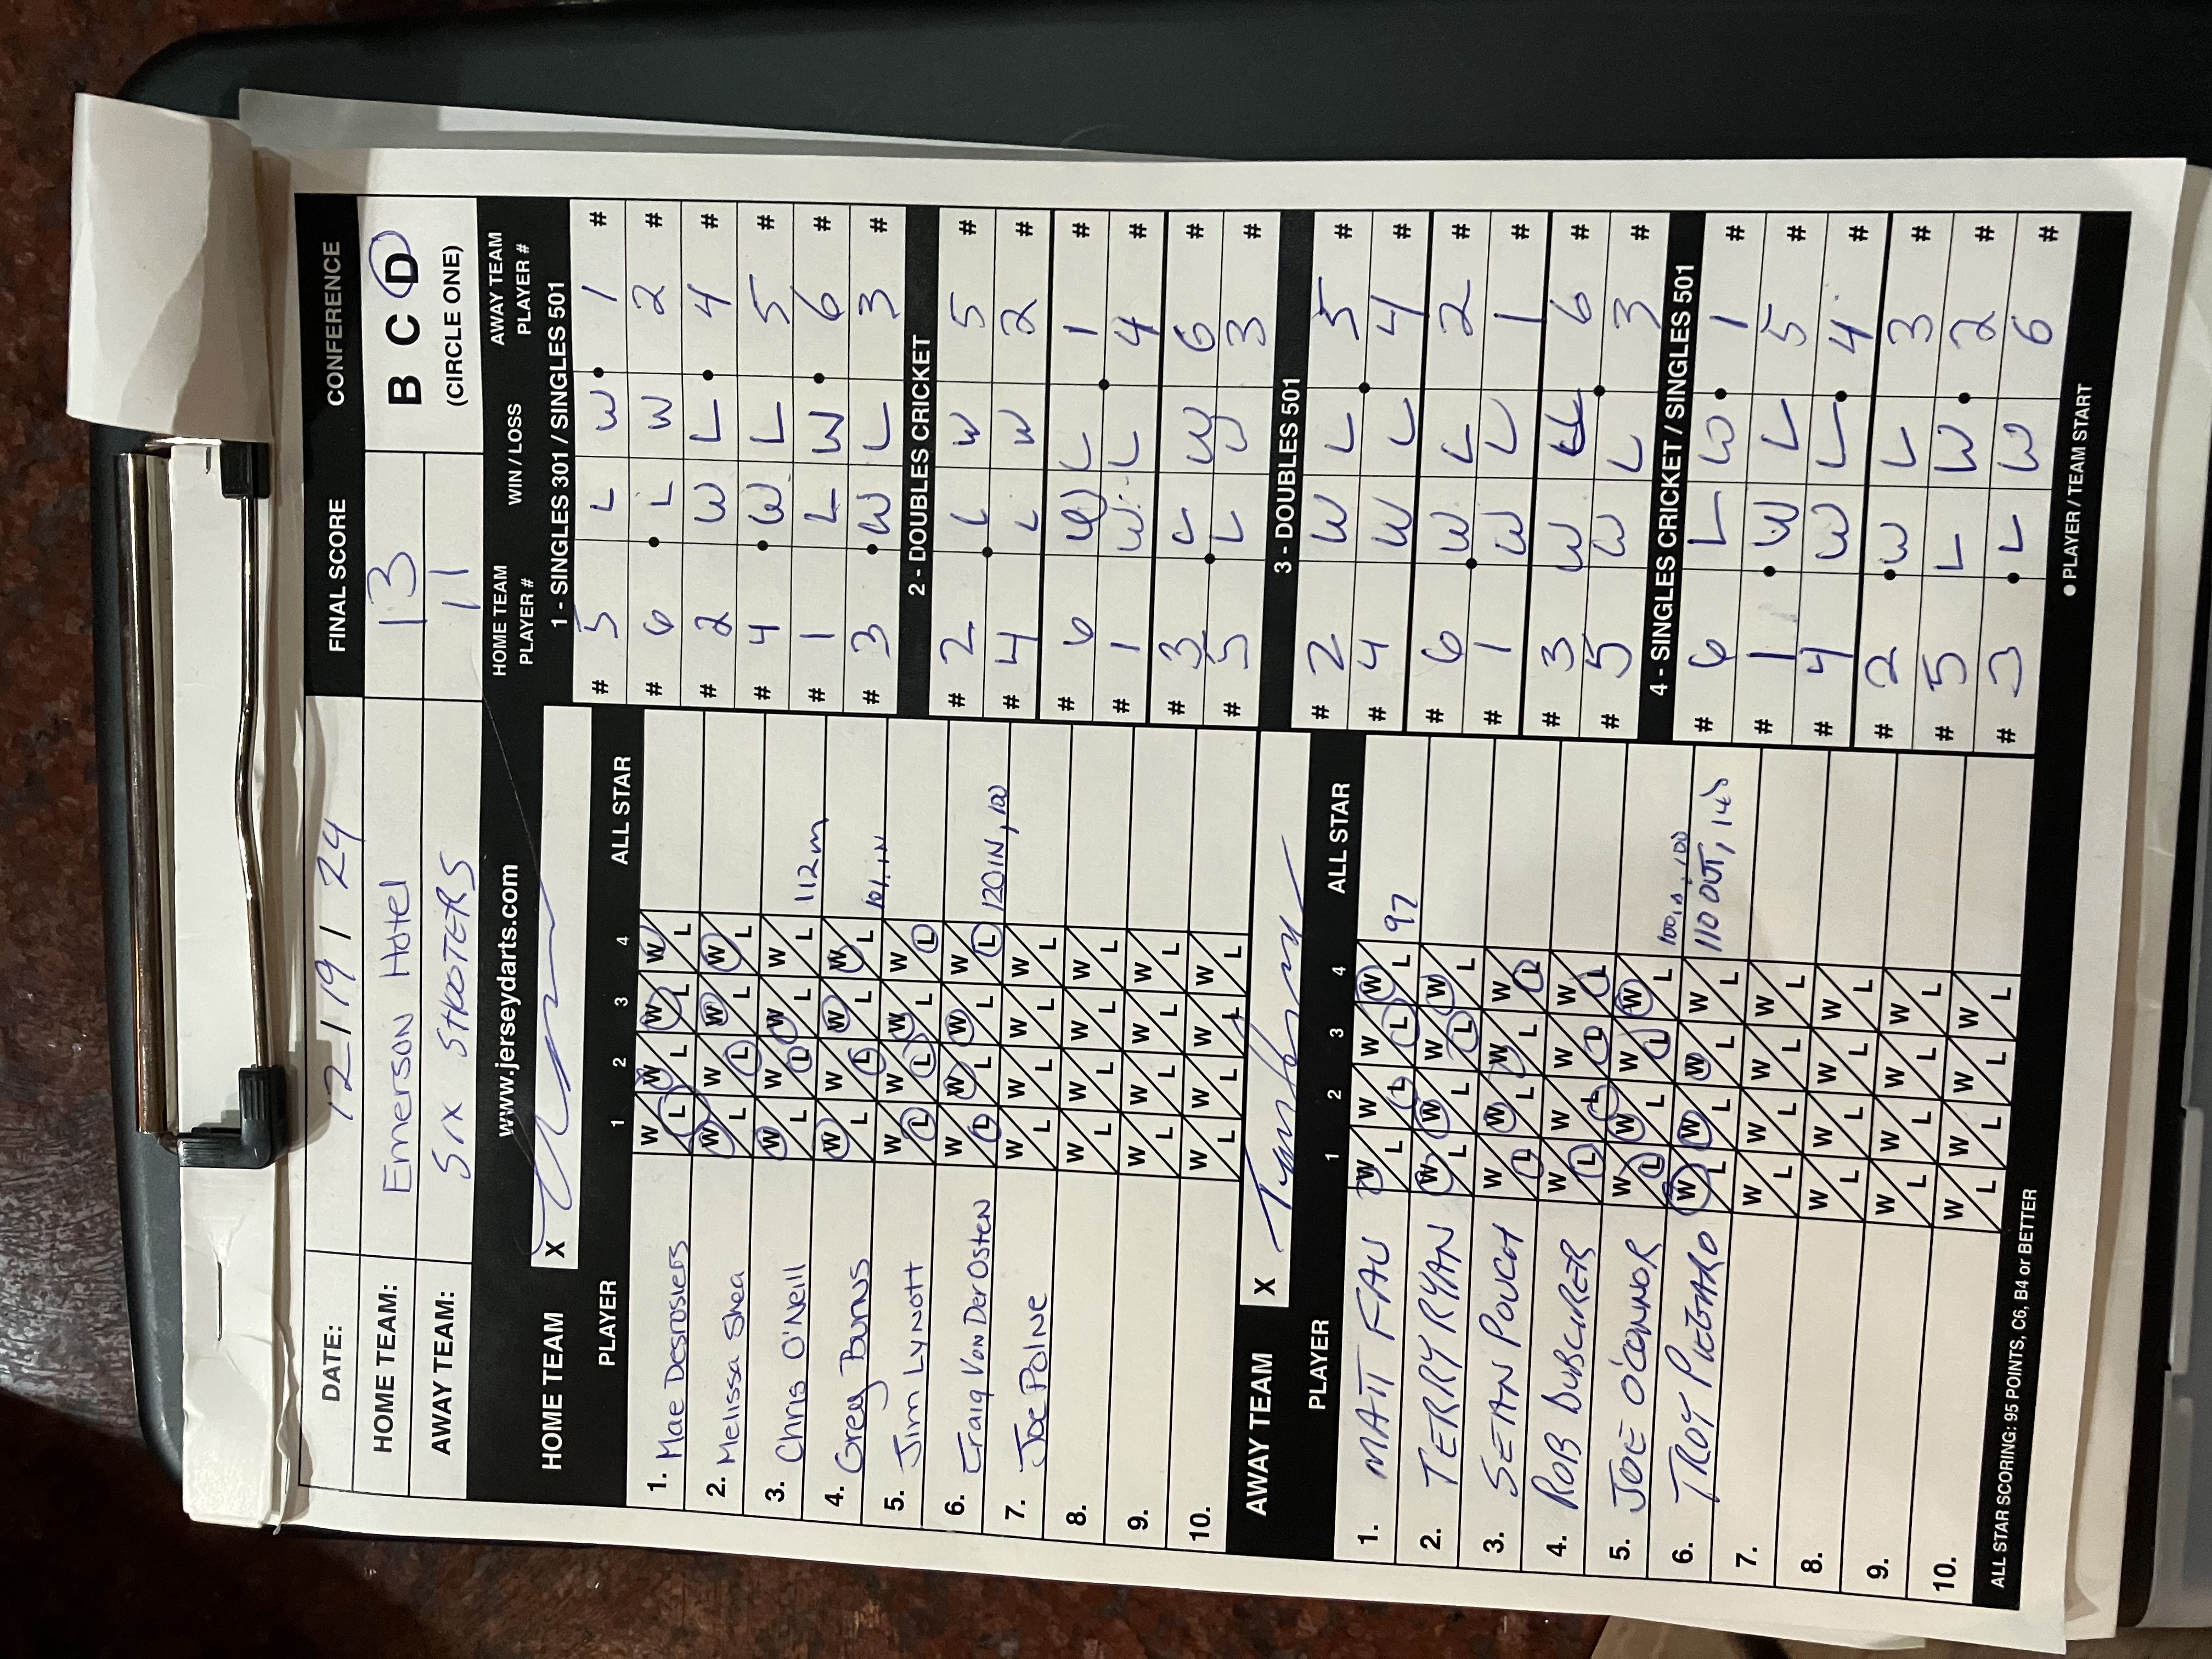 DATE: 12/19/24 FINAL SCORE CONFERENCE
HOME TEAM: Emerson Hotel 13 B C D
AWAY TEAM: SIX SHOOTERS 11 (CIRCLE ONE)
www.jerseydarts.com
HOME TEAM X
PLAYER 1 2 3 4 ALL STAR
1. Mae Desrosiers W L W L W L W L
2. Melissa Shea W L W L W L W L
3. Chris O'Neill W L W L W L W L 112in
4. Greg Burns W L W L W L W L 101 IN
5. Jim Lynott W L W L W L W L
6. Craig Von Der Osten W L W L W L W L 120 IN, 100
7. Joe Paine W L W L W L W L
8. W L W L W L W L
9. W L W L W L W L
10. W L W L W L W L
AWAY TEAM X
PLAYER 1 2 3 4 ALL STAR
1. MATT FAU W L W L W L W L 97
2. TERRY RYAN W L W L W L W L
3. SEAN POUCH W L W L W L W L
4. ROB W L W L W L W L
5. JOE O'CONNOR W L W L W L W L 100, 100
6. TROY PIEGARO W L W L W L W L 110 OUT, 145
7. W L W L W L W L
8. W L W L W L W L
9. W L W L W L W L
10. W L W L W L W L
ALL STAR SCORING: 95 POINTS, C6, B4 or BETTER
HOME TEAM PLAYER # WIN / LOSS AWAY TEAM PLAYER #
1 - SINGLES 301 / SINGLES 501
# 5 L W 1 #
# 6 L W 2 #
# 2 W L 4 #
# 4 W L 5 #
# 1 L W 6 #
# 3 W L 3 #
2 - DOUBLES CRICKET
# 2 L W 5 #
# 4 L W 2 #
# 6 W L 1 #
# 1 W L 4 #
# 3 L W 6 #
# 5 L W 3 #
3 - DOUBLES 501
# 2 W L 5 #
# 4 W L 4 #
# 6 W L 2 #
# 1 W L 1 #
# 3 W L 6 #
# 5 W L 3 #
4 - SINGLES CRICKET / SINGLES 501
# 6 L W 1 #
# 1 W L 5 #
# 4 W L 4 #
# 2 W L 3 #
# 5 L W 2 #
# 3 L W 6 #
● PLAYER / TEAM START